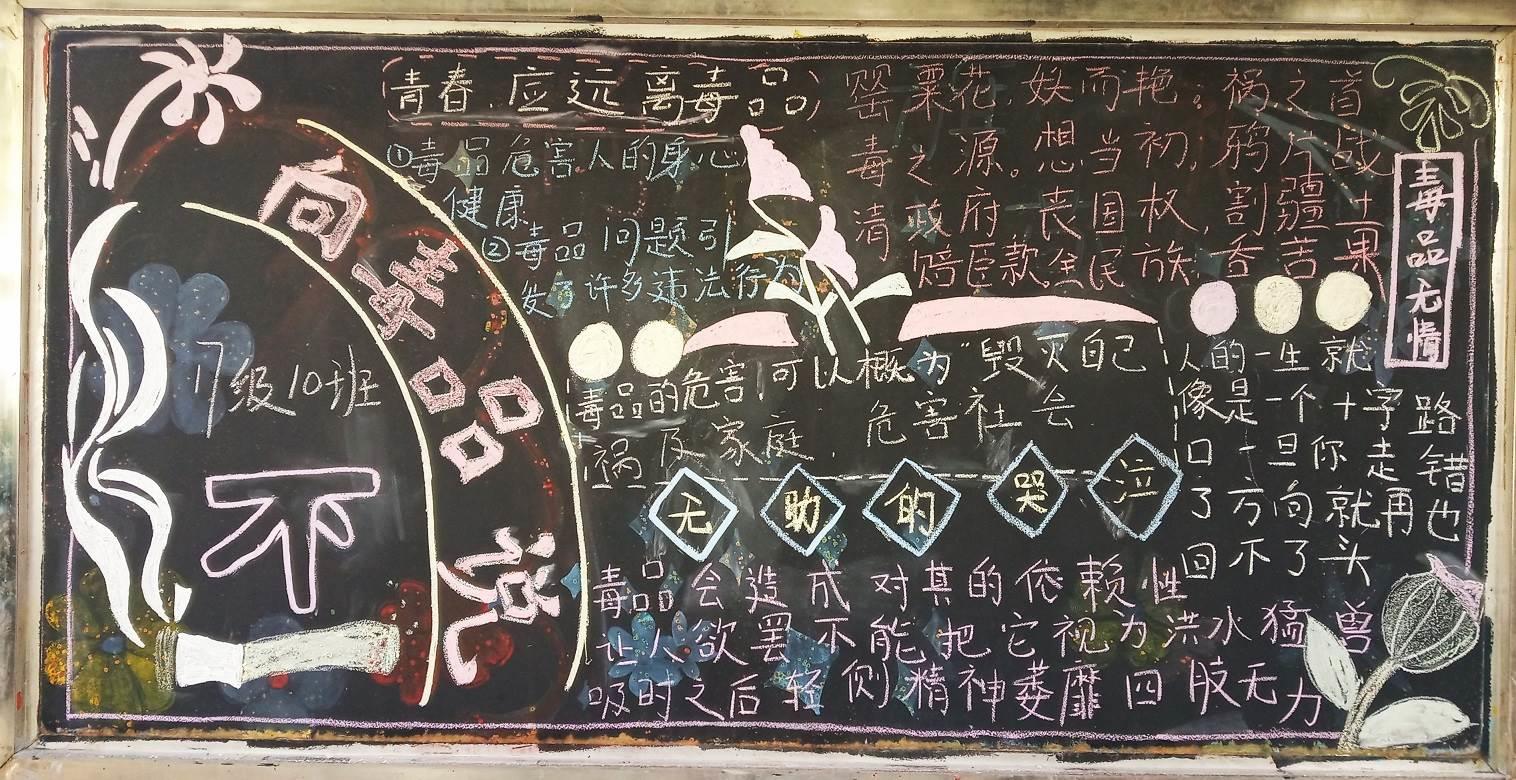 向毒品说
不
17级10班
青春,应远离毒品
①毒品危害人的身心
健康
②毒品问题引
发了许多违法行为
罂粟花,妖而艳。祸之首
毒之源。想当初,鸦片战
清政府丧国权,割疆土
赔巨款全民族,吞苦果
毒品无情
毒品的危害可以概为"毁灭自己
祸及家庭,危害社会
人的一生就
像是一个十字路
口一旦你走错
了万向就再也
回不了头
无助的哭泣
毒品会造成对其的依赖性
让人欲罢不能把它视为洪水猛兽
吸时之后轻侧精神萎靡四肢无力